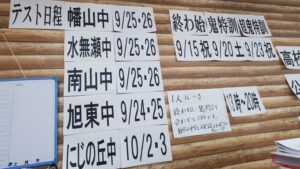 テスト日程
幡山中 9/25・26
水無瀬中 9/25・26
南山中 9/25・26
旭東中 9/24・25
にじの丘中 10/2・3
終わ始 鬼特訓 超鬼特訓
9/15祝 9/20土 9/23祝
1人につき
13時〜20時
高校
公